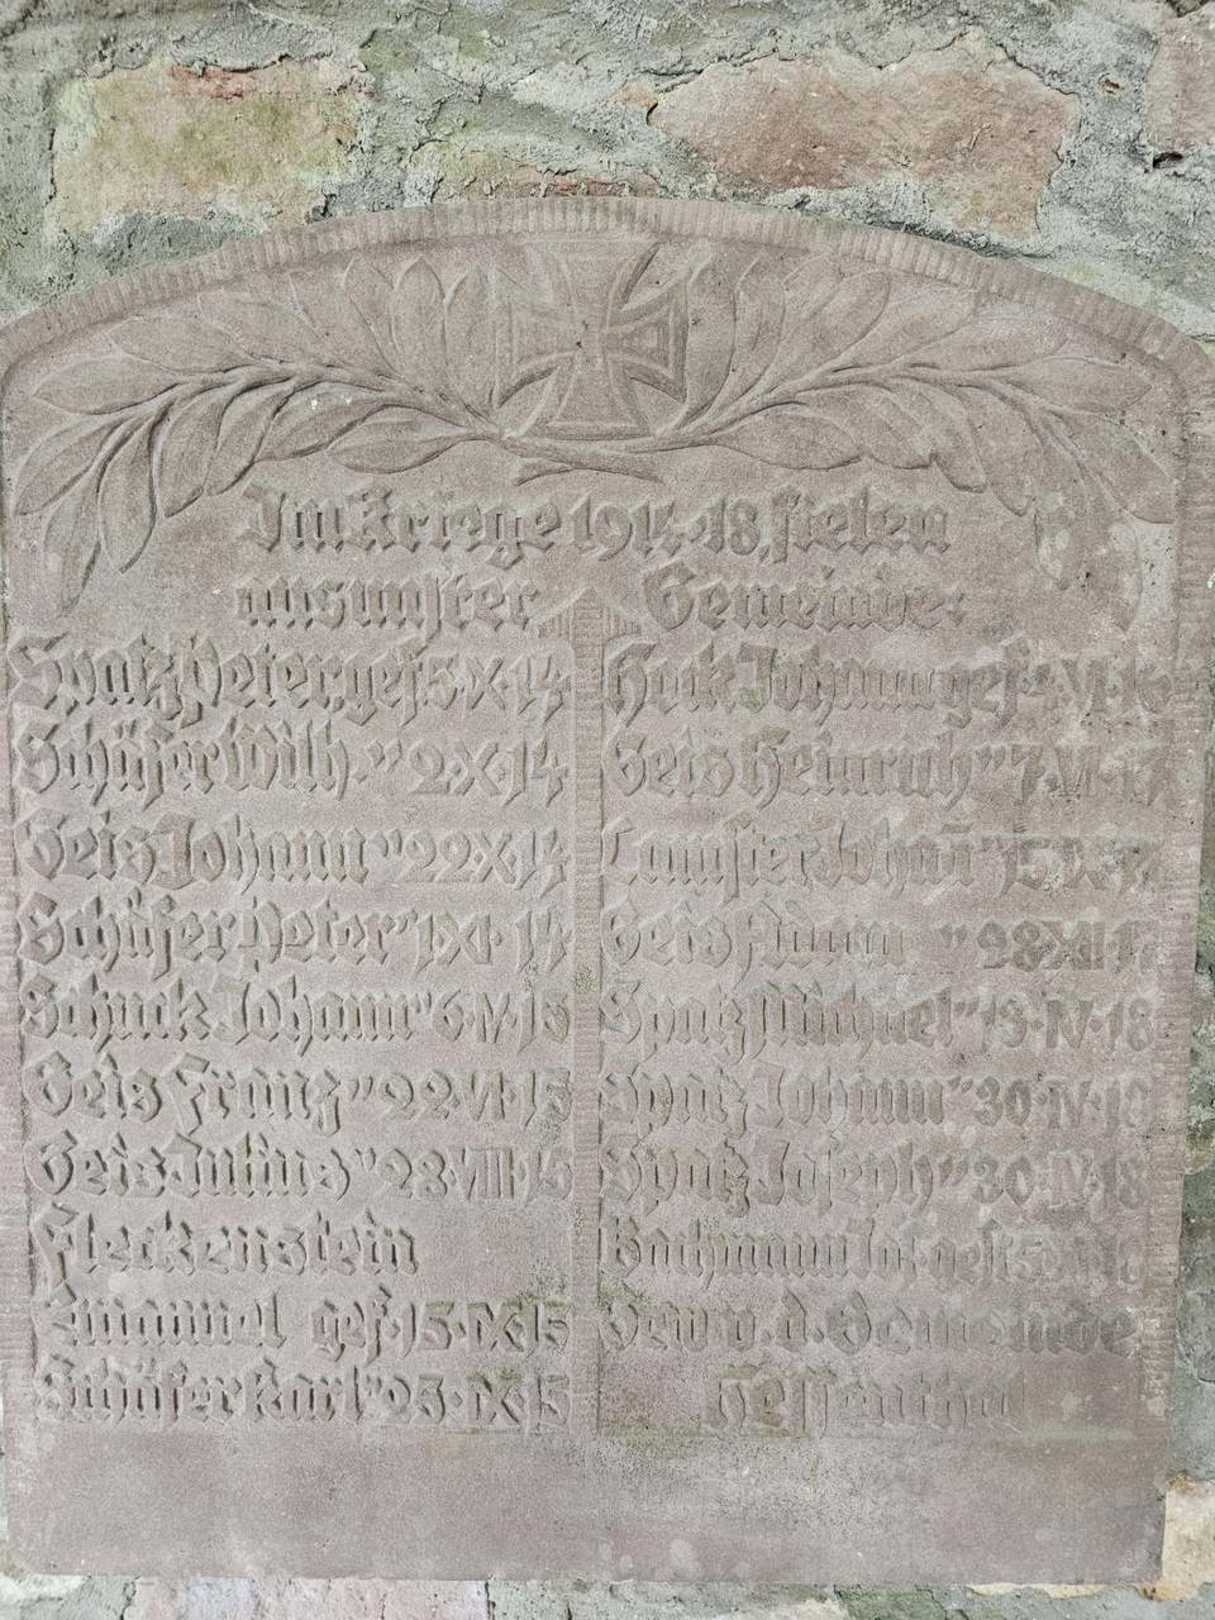 Im Kriege 1914·18, fielen
aus unsrer Gemeinde:
Spatz Peter gef. 5·X·14
Schäfer Wilh. " 2·X·14
Geis Johann " 22·X·14
Schäfer Peter " 1·XI·14
Schuck Johann " 6·IV·15
Geis Franz " 22·VI·15
Geis Julius " 28·VIII·15
Fleckenstein
Emanuel gef. 15·IX·15
Schäfer Karl " 25·IX·15
Johann gef. VI·16
Geis Heinrich " 7·VI·17
Johañ "
Geis Adam " 28 XII·17
Spatz Michael " 13·IV·18
Spatz Johann " 30·IV·18
Spatz Joseph " 30·IV·18
Bachmann Joh. gef.
Gew. v. d. Gemeinde
Hessenthal